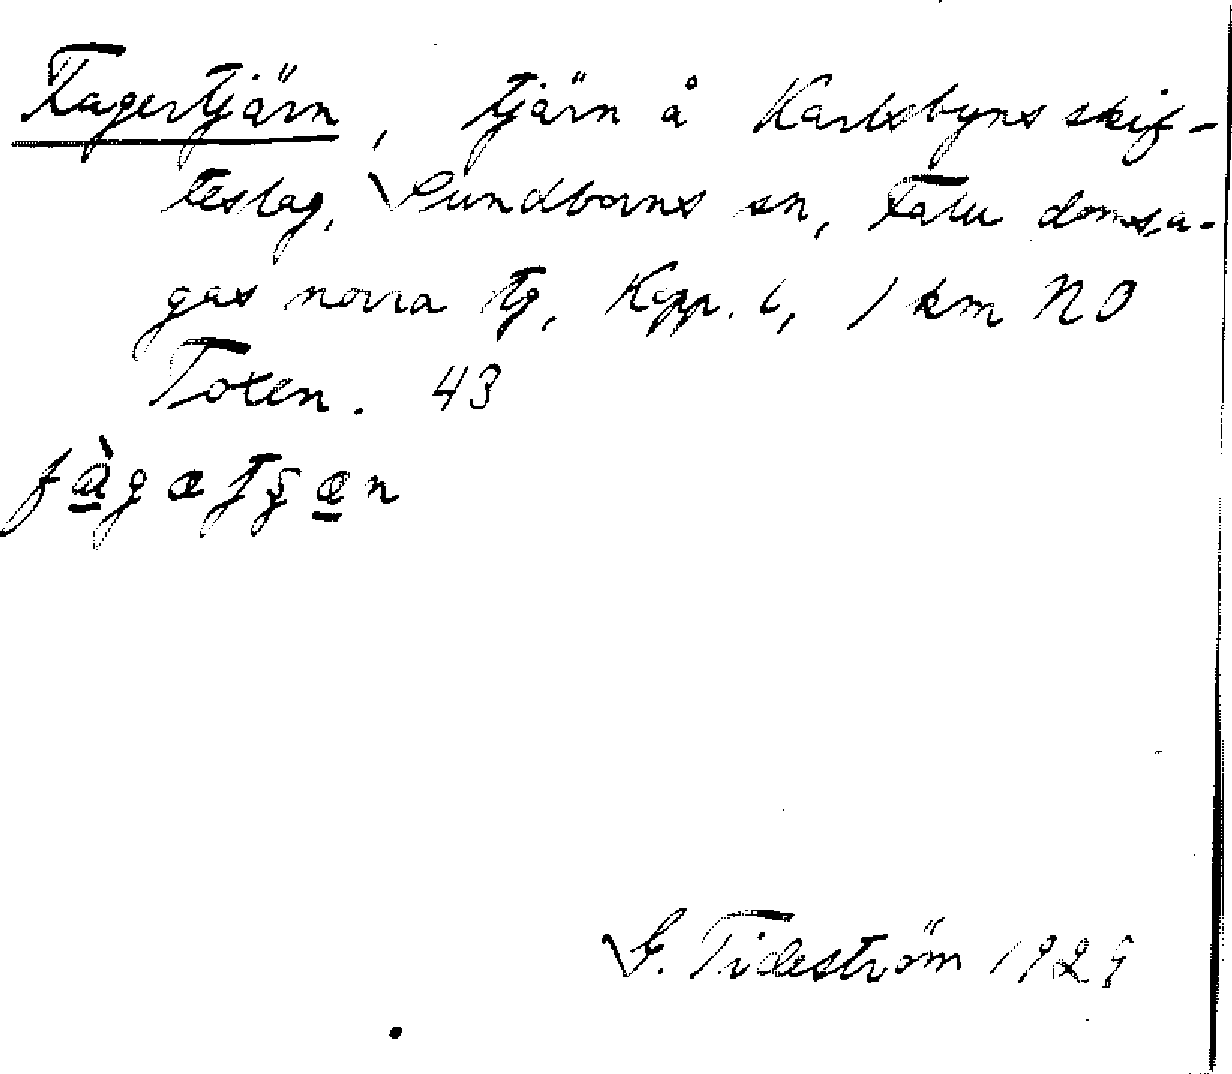 Fagertjärn, tjärn å Karlsbyns skif-
teslag, Sundborns sn, Falu domsa-
gas norra tg, Kopp. l, 1 km NO
Toxen. 43
G. Tideström 1929